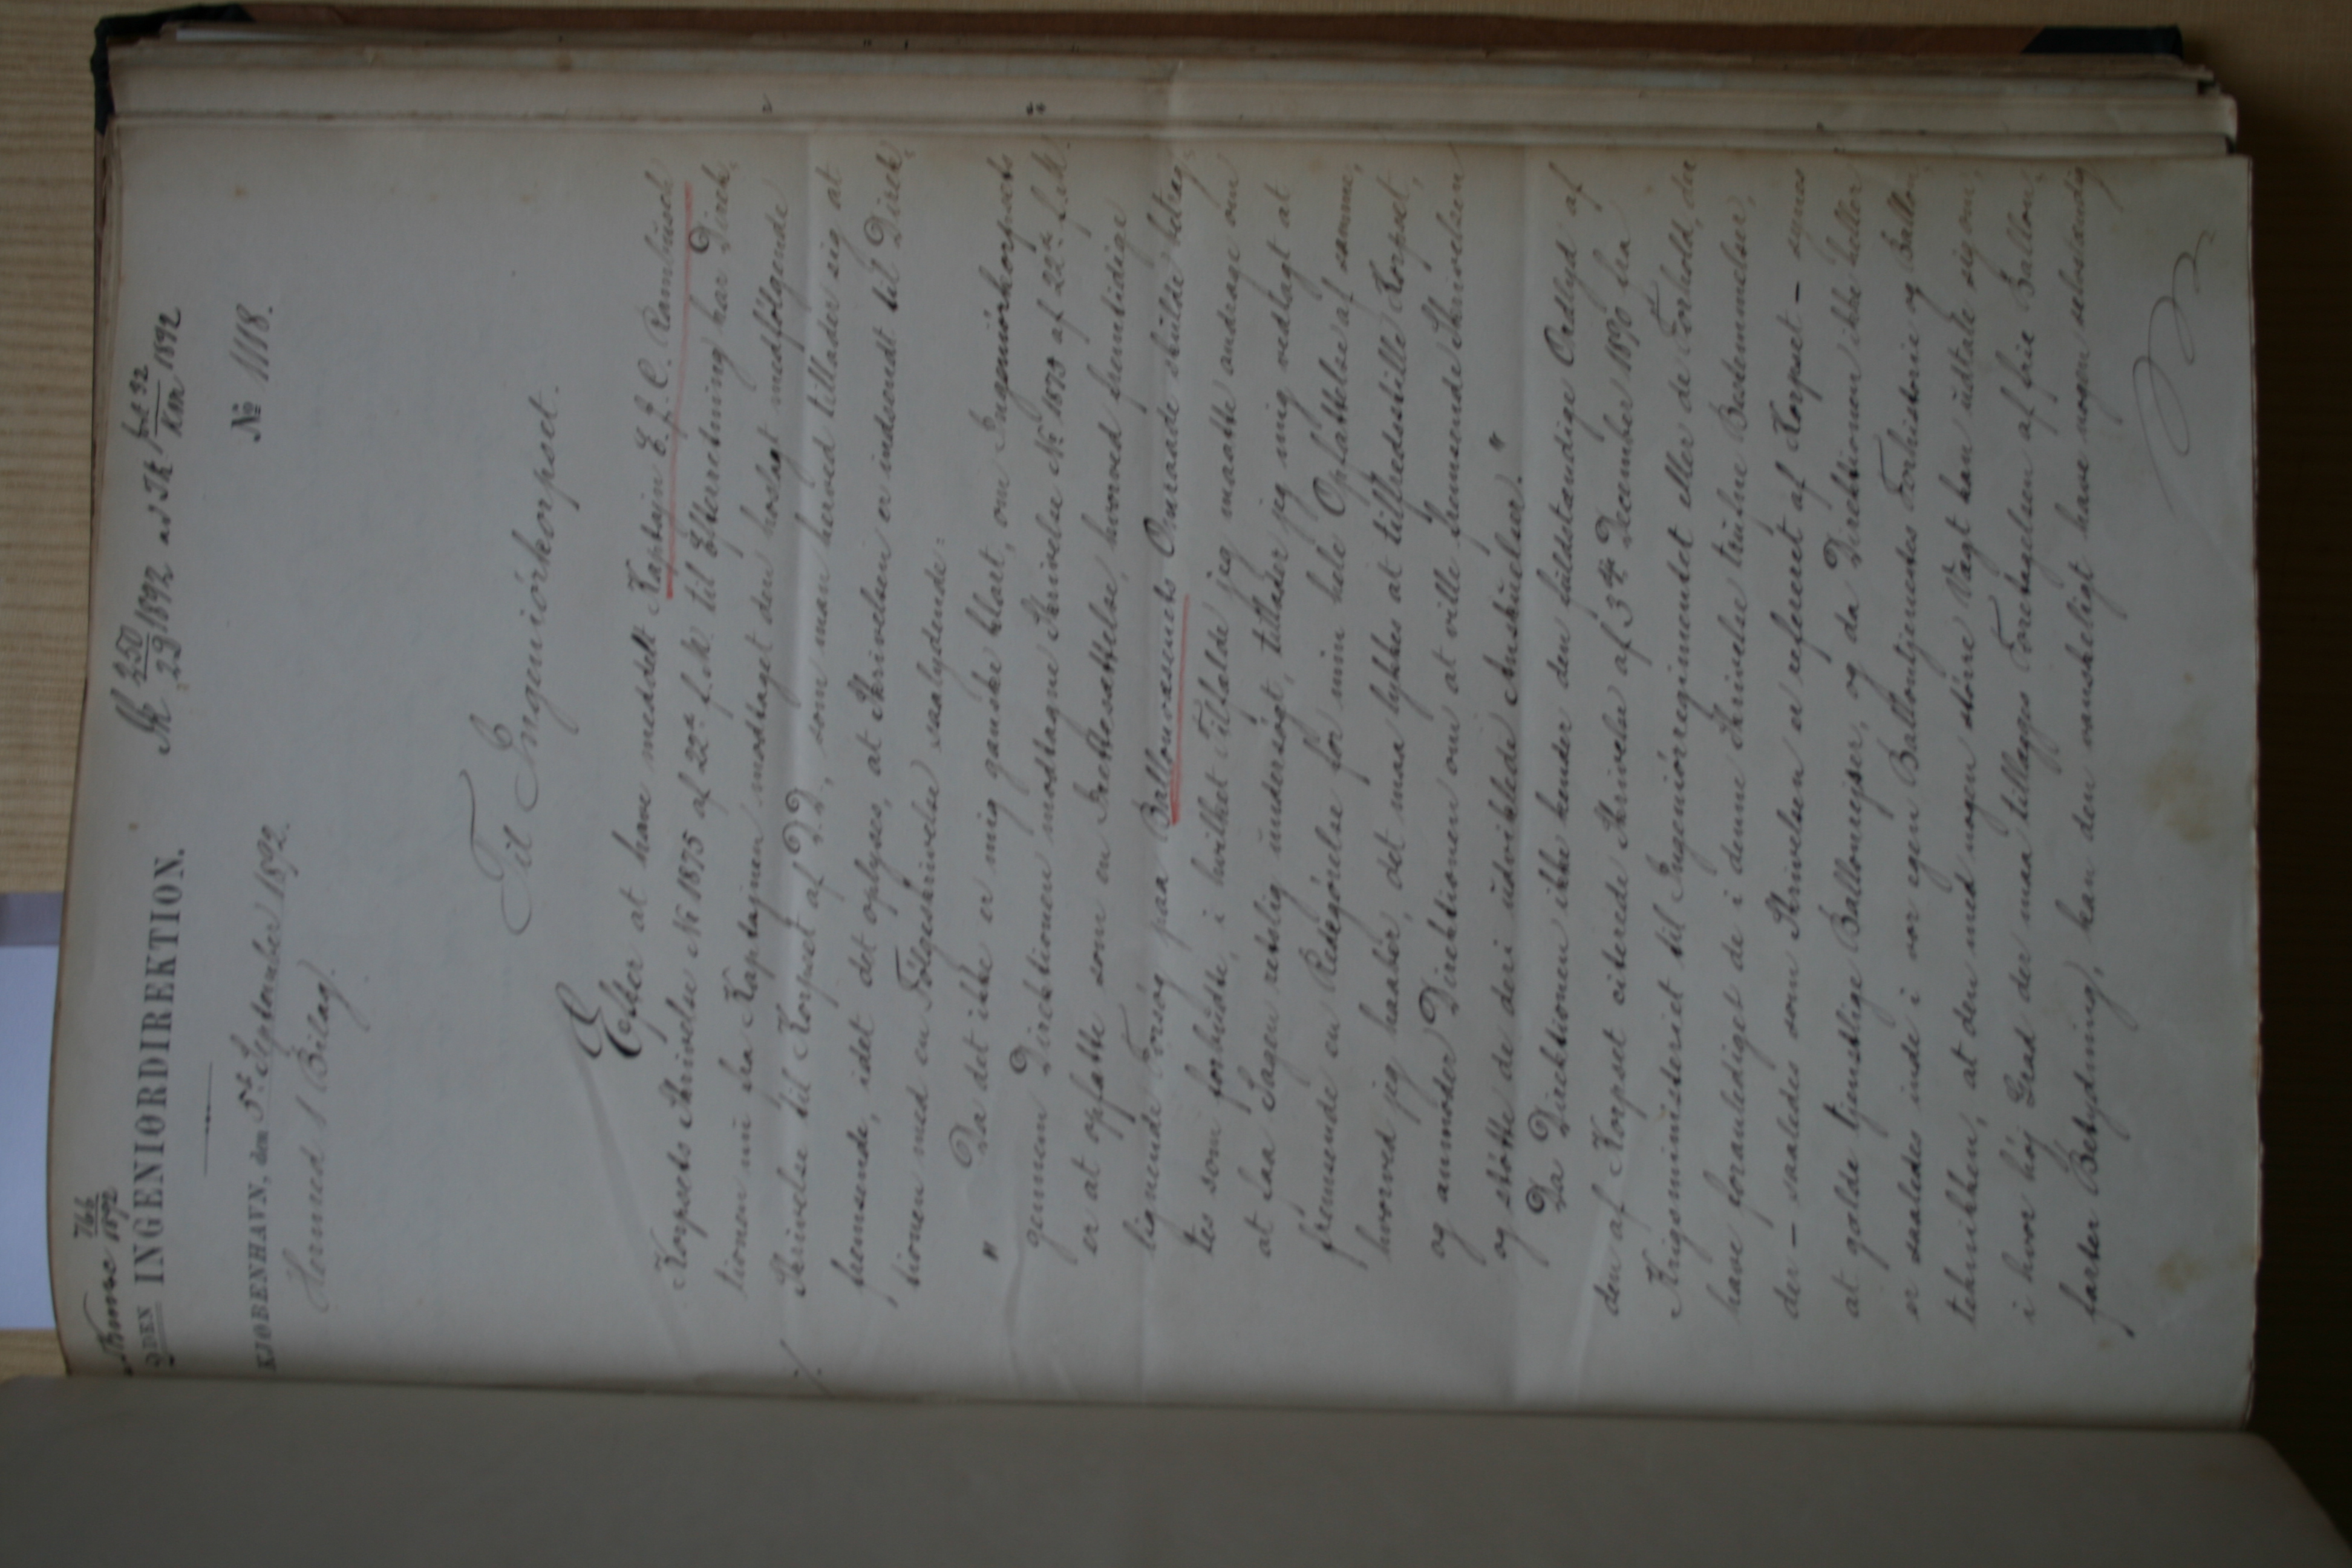 766
1892
IK 250/29 1892 ad IK
2DEN INGENIORDIREKTION.
KJØBENHAVN, den 5t September 1892.
№ 1118.
Hermed 1 Bilag.
Til Ingeniörkorpset.
Efter at have meddelt Kaptajn E. J. C. Rambüsch
Korpsets Skrivelse № 1875 af 22de f. M. til Efterretning har Direk-
tionen nü fra Kaptajnen modtaget den hoslagt medfölgende
Skrivelse til Korpset af D. D., som man herved tillader sig at
fremsende, idet det oplyses, at Skrivelsen er indsendt til Direk-
tionen med en Fölgeskrivelse saalydende:
" Da det ikke er mig ganske klart, om Ingeniörkorpsets
gennem Direktionen modtagne Skrivelse № 1875 af 22de f. M.
er at opfatte som en Irettesættelse, hvorved fremtidige
lignende Forsög paa Ballonvæsenets Omraade skülde betrag-
tes som forbüdte, i hvilket Tilfælde jeg maatte andrage om
at faa Sagen retslig ündersögt, tillader jeg mig vedlagt at
fremsende en Redegörelse for min hele Opfattelse af samme,
hvorved jeg haaber, det maa lykkes at tilfredsstille Korpset,
og anmoder Direktionen om at ville fremsende Skrivelsen
og stötte de deri üdviklede Anskuelser."
Da Direktionen ikke kender den füldstændige Ordlyd af
den af Korpset citerede Skrivelse af 3de December 1890 fra
Krigsministeriet til Ingeniörregimentet eller de Forhold, der
have foranlediget de i denne Skrivelse trüfne Bestemmelser,
der – saaledes som Skrivelsen er refereret af Korpset – synes
at gælde tjenstlige Ballonrejser, og da Direktionen ikke heller
er saaledes inde i vor egen Ballontjenestes Forhistorie og Ballon-
teknikken, at den med nogen större Vægt kan üdtale sig om,
i hvor höj Grad der maa tillægges Foretagelsen af frie Ballon-
farter Betydning, kan den vanskeligt have nogen selvstændig